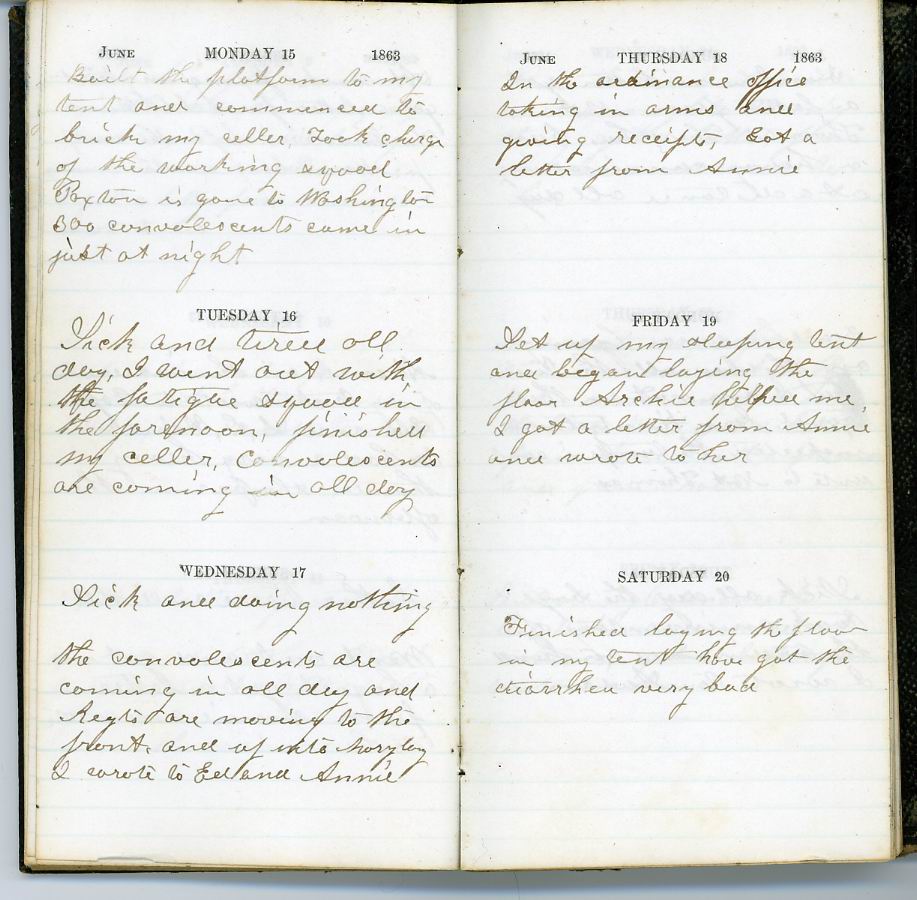 JUNE MONDAY 15 1863
Built the platform to my
tent and commenced to
brick my celler, Took charge
of the working squad
Paxton is gone to Washington
300 convolescents came in
just at night
TUESDAY 16
Sick and tired all
day, I went out with
the fatigue squad in
the forenoon, finished
my celler, Convolescents
are coming in all day
WEDNESDAY 17
Sick and doing nothing
the convolescents are
coming in all day and
Regts are moving to the
front, and up into
I wrote to Ed and Annie
JUNE THURSDAY 18 1863
In the ordinance office
taking in arms and
giving receipts, Got a
letter from Annie
FRIDAY 19
Set up my sleeping tent
and began laying the
floor Archie helped me,
I got a letter from Annie
and wrote to her
SATURDAY 20
Finished laying the floor
in my tent have got the
diarrhea very bad